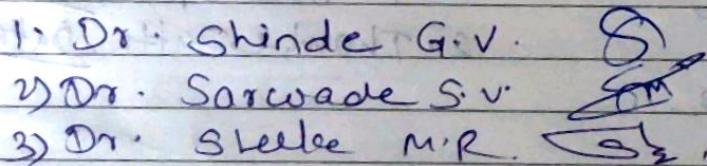 1. Dr. Shinde G.V.
2) Dr. Sarwade S.V.
3) Dr. M.R.